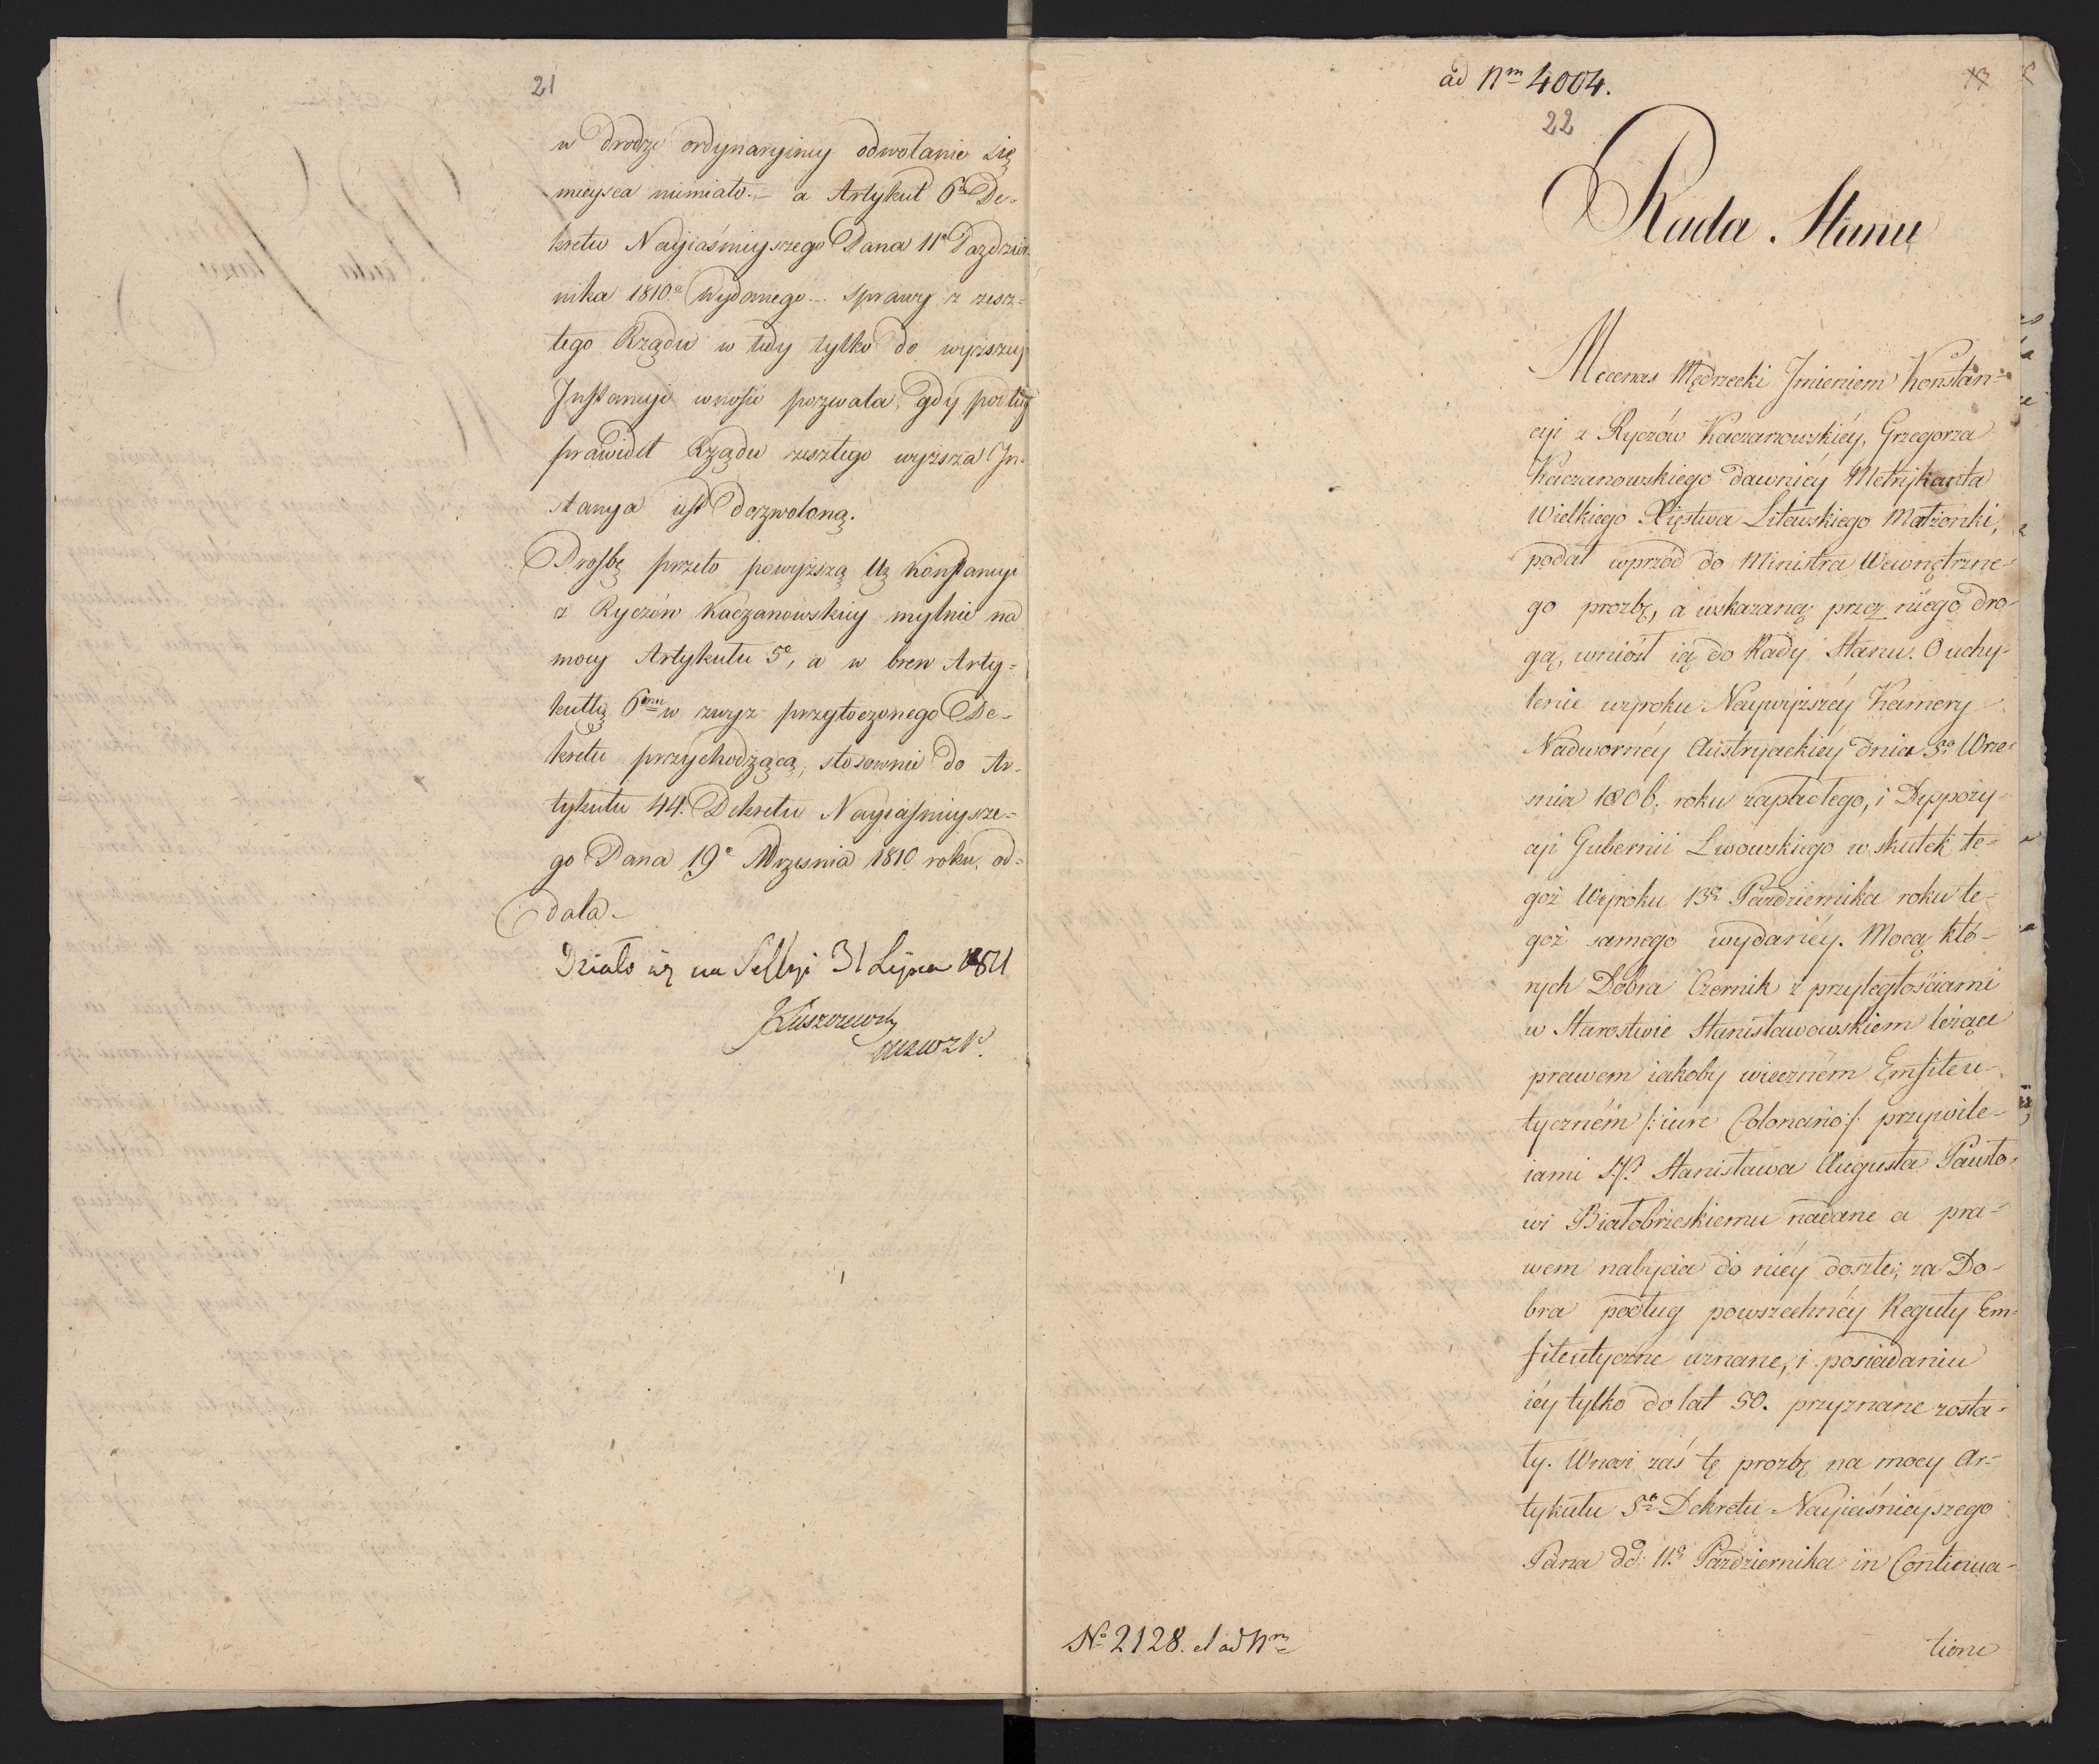 21
w drodze ordynaryiney odwołanie się
mieysca niemiało. – a Artykuł 6ty De-
kretu Nayiaśnieyszego Pana 11o Paździer-
nika 1810o wydanego – sprawy z zesz-
łego Rządu w tedy tylko do wyższey
Instancyi wnosić pozwala, gdy podług
prawideł Rządu zeszłego wyższa In-
stancya iest dozwoloną.
Prośbę przeto powyższą Ur Konstancyi
z Ryczów Kaczanowskiey mylnie na
mocy Artykułu 5o, a w brew Arty-
kułu 6mu w zwyż przytoczonego De-
kretu przychodzącą, stosownie do Ar-
tykułu 44. Dekretu Nayiaśnieysze-
go Pana 19o Września 1810 roku, od-
dala –
Działo się na Sessyi 31 Lipca 1811
ad Nm 4004.
13
22
Rada Stanu
Mecenas Mędrzecki Jmieniem Konstan-
cyi z Ryczów Kaczanowskiéy, Grzegorza
Kaczanowskiego dawniéy Metrykanta
Wielkiego Xięstwa Litewskiego Małżonki,
podał wprzód do Ministra Wewnętrzne-
go prozbę, a wskazaną przez niego dro-
gą, wniósł ią do Rady Stanu. O uchy-
lenie wyroku Naywyższéy Kamery
Nadwornéy Austryackiéy dnia 5o Wrze-
śnia 1806. roku zapadłego, i Dyspozy-
cyi Gubernii Lwowskiego w skutek te-
goż Wyroku 13o Października roku te-
goż samego wydanéy. Mocą któ-
rych Dobra Czernik z przyległościami
w Starostwie Stanisławowskiem leżące
prawem iakoby wieczném Emfiteu-
tyczném /: iure Colonario :/ przywile-
iami S.P. Stanisława Augusta Pawło-
wi Białobrzeskiemu nadane a pra-
wem nabycia do niéy doszłe, za Do-
bra podług powszechnéy Reguły Em-
fiteutyczne uznane, i posiadaniu
iéy tylko do lat 50. przyznane zosta-
ły. Wnosi zaś tę prozbę na mocy Ar-
tykułu 5o Dekretu Nayiaśnieyszego
Pana dd: 11o Października in Continua-
tione
No 2128. et ad Nm